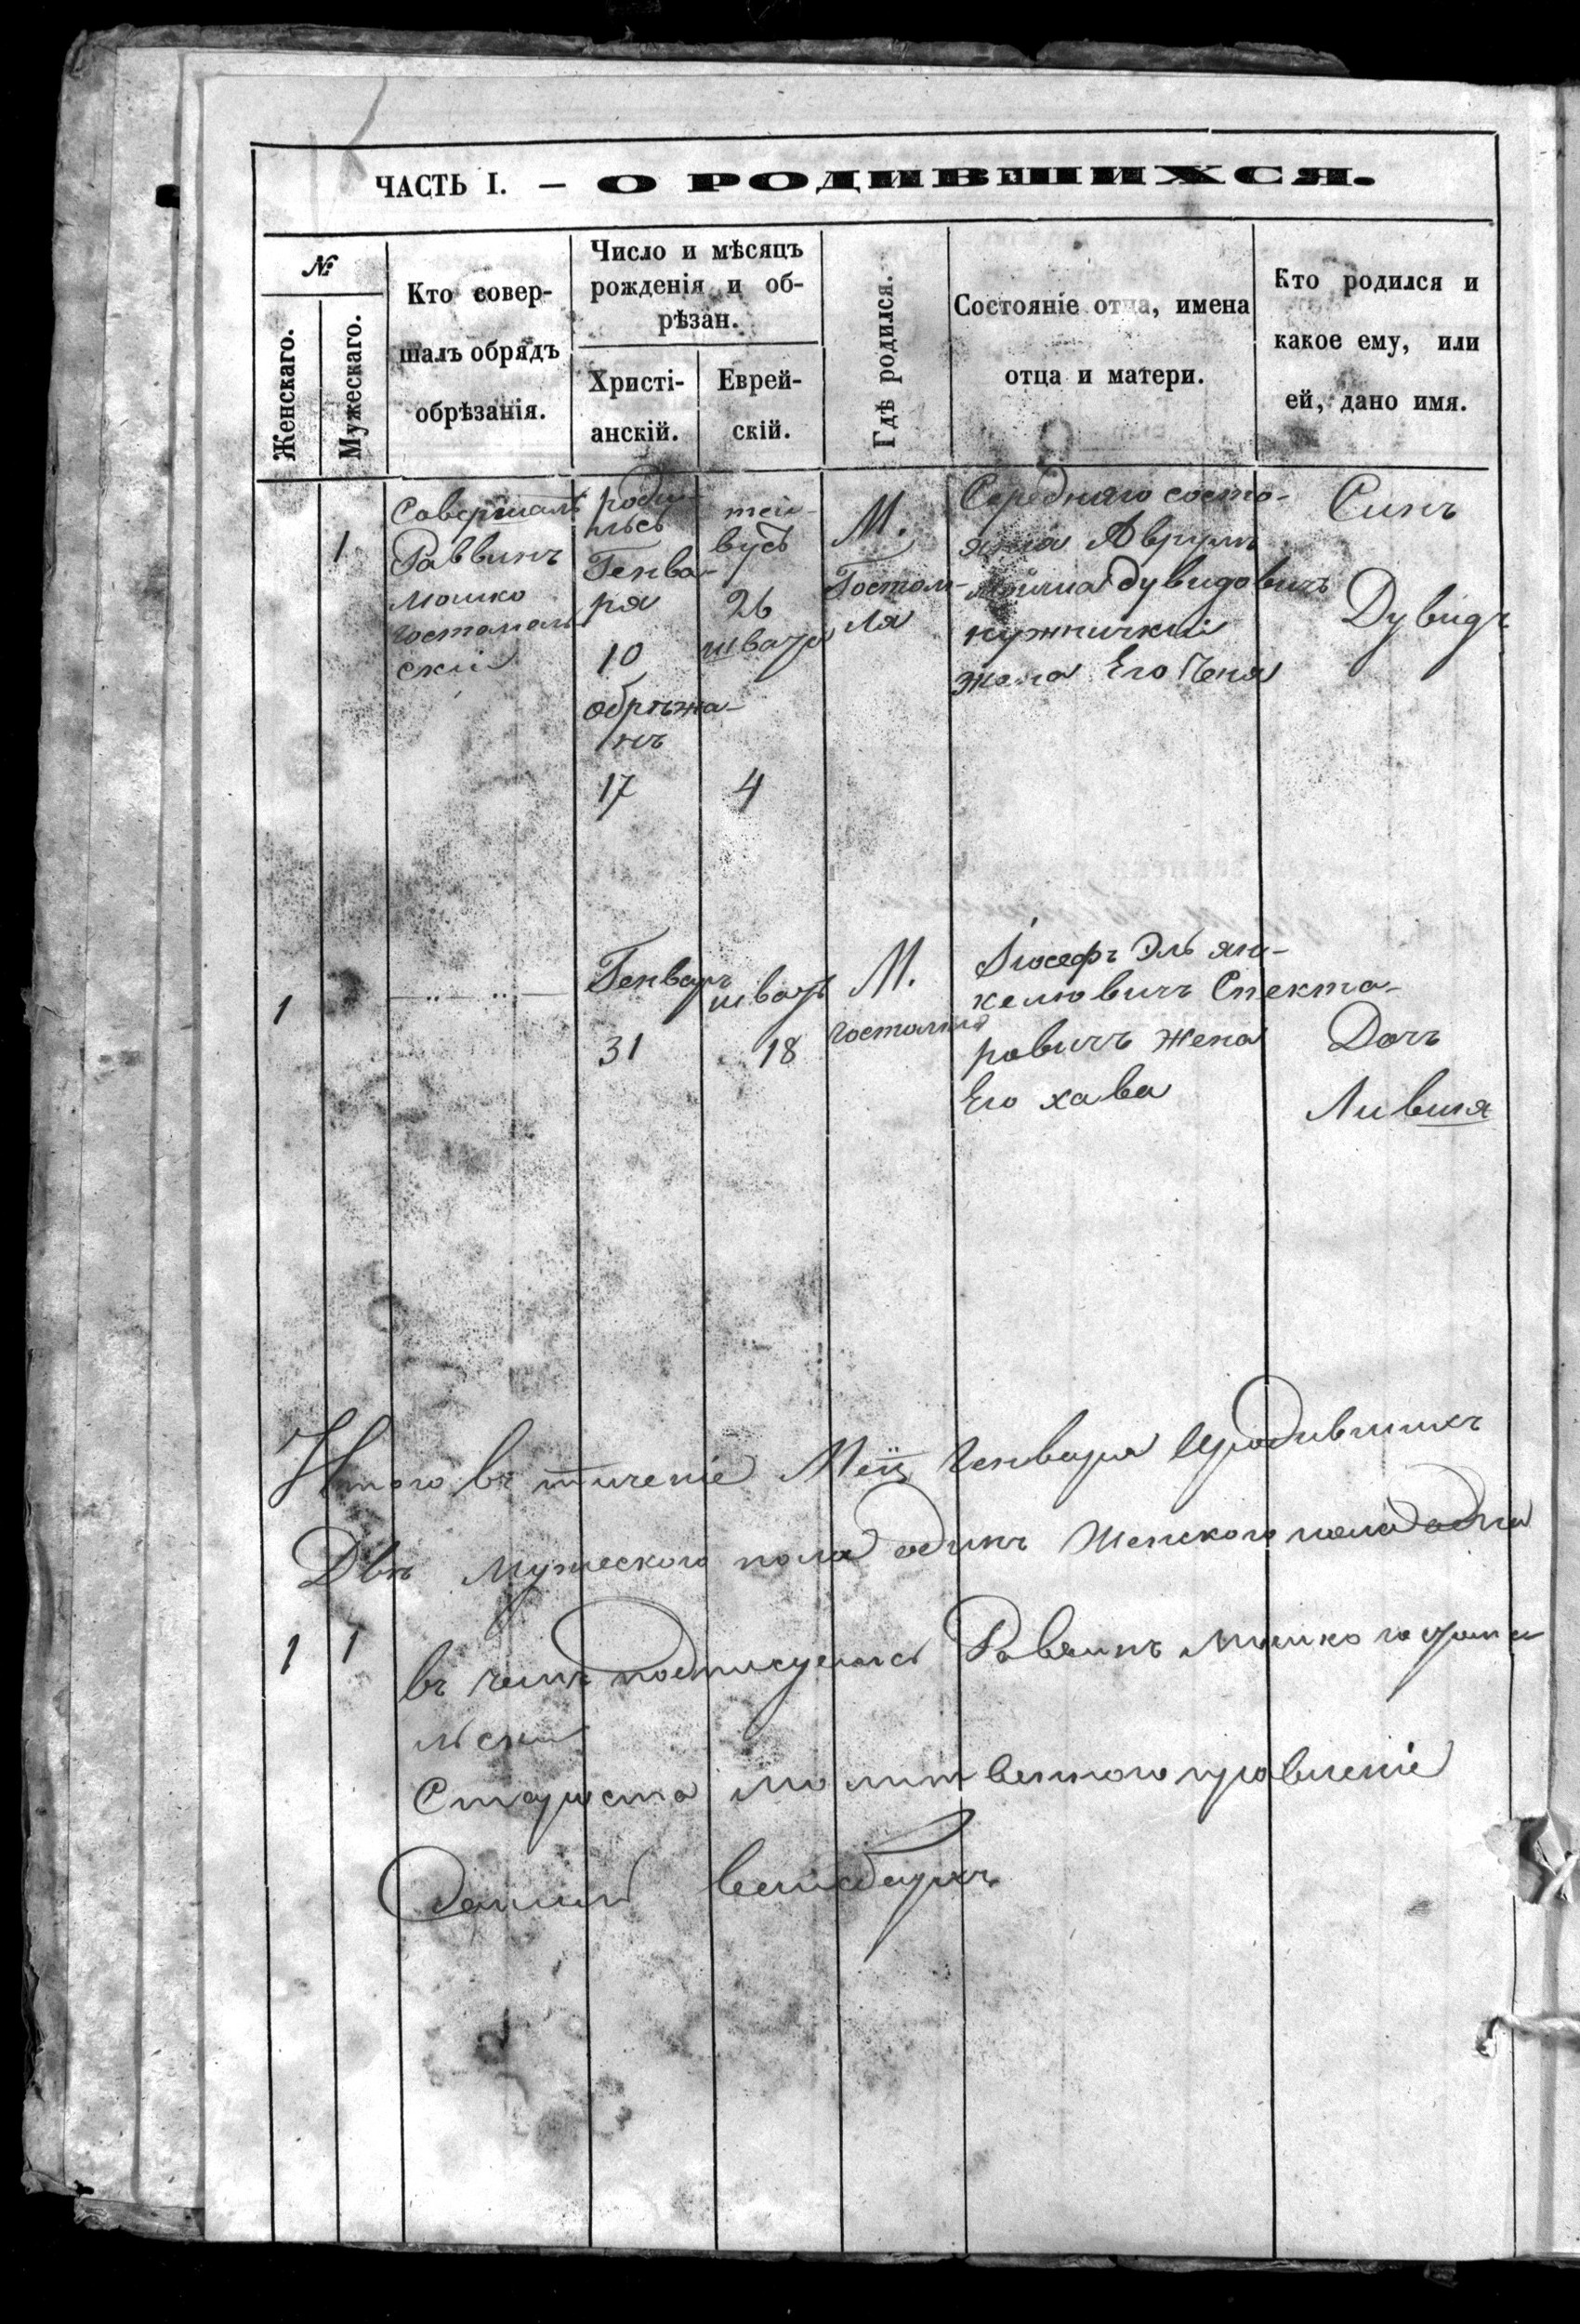 ЧАСТЬ I. — О РОДИВШИХСЯ.
№
Женскаго.
Мужескаго.
Кто совер-
шалъ обрядъ
обрѣзанія.
Число и мѣсяцъ
рожденія и об-
рѣзан.
Христі-
анскій.
Еврей-
скій.
Гдѣ родился.
Состояніе отца, имена
отца и матери.
Кто родился и
какое ему, или
ей, дано имя.
1
Совершалъ
Раввинъ
Мошко
гостомель
скій
роди-
лься
Генва-
ря
10
обрѣжа-
нъ
17
тей-
вусъ
26
шватъ
4
М.
Гостом-
ля
Середняго состо-
яния Аврумъ
дувидовичъ
жена Его Ченя
Синъ
Дувидъ
1
Генваръ
31
шватъ
18
М.
гостомля
Іосефъ Эль ян-
келювичъ Спекто-
ровичъ жена
Его хава
Дочь
Лившя
Итого въ тичение Мец Генваря Уродившихъ
Двѣ мужеского пола одинъ Женского пола одна
1 1
въ чемъ подписуемъсь Раввинъ Мошко гостоме
льский
Староста молитвенного правление